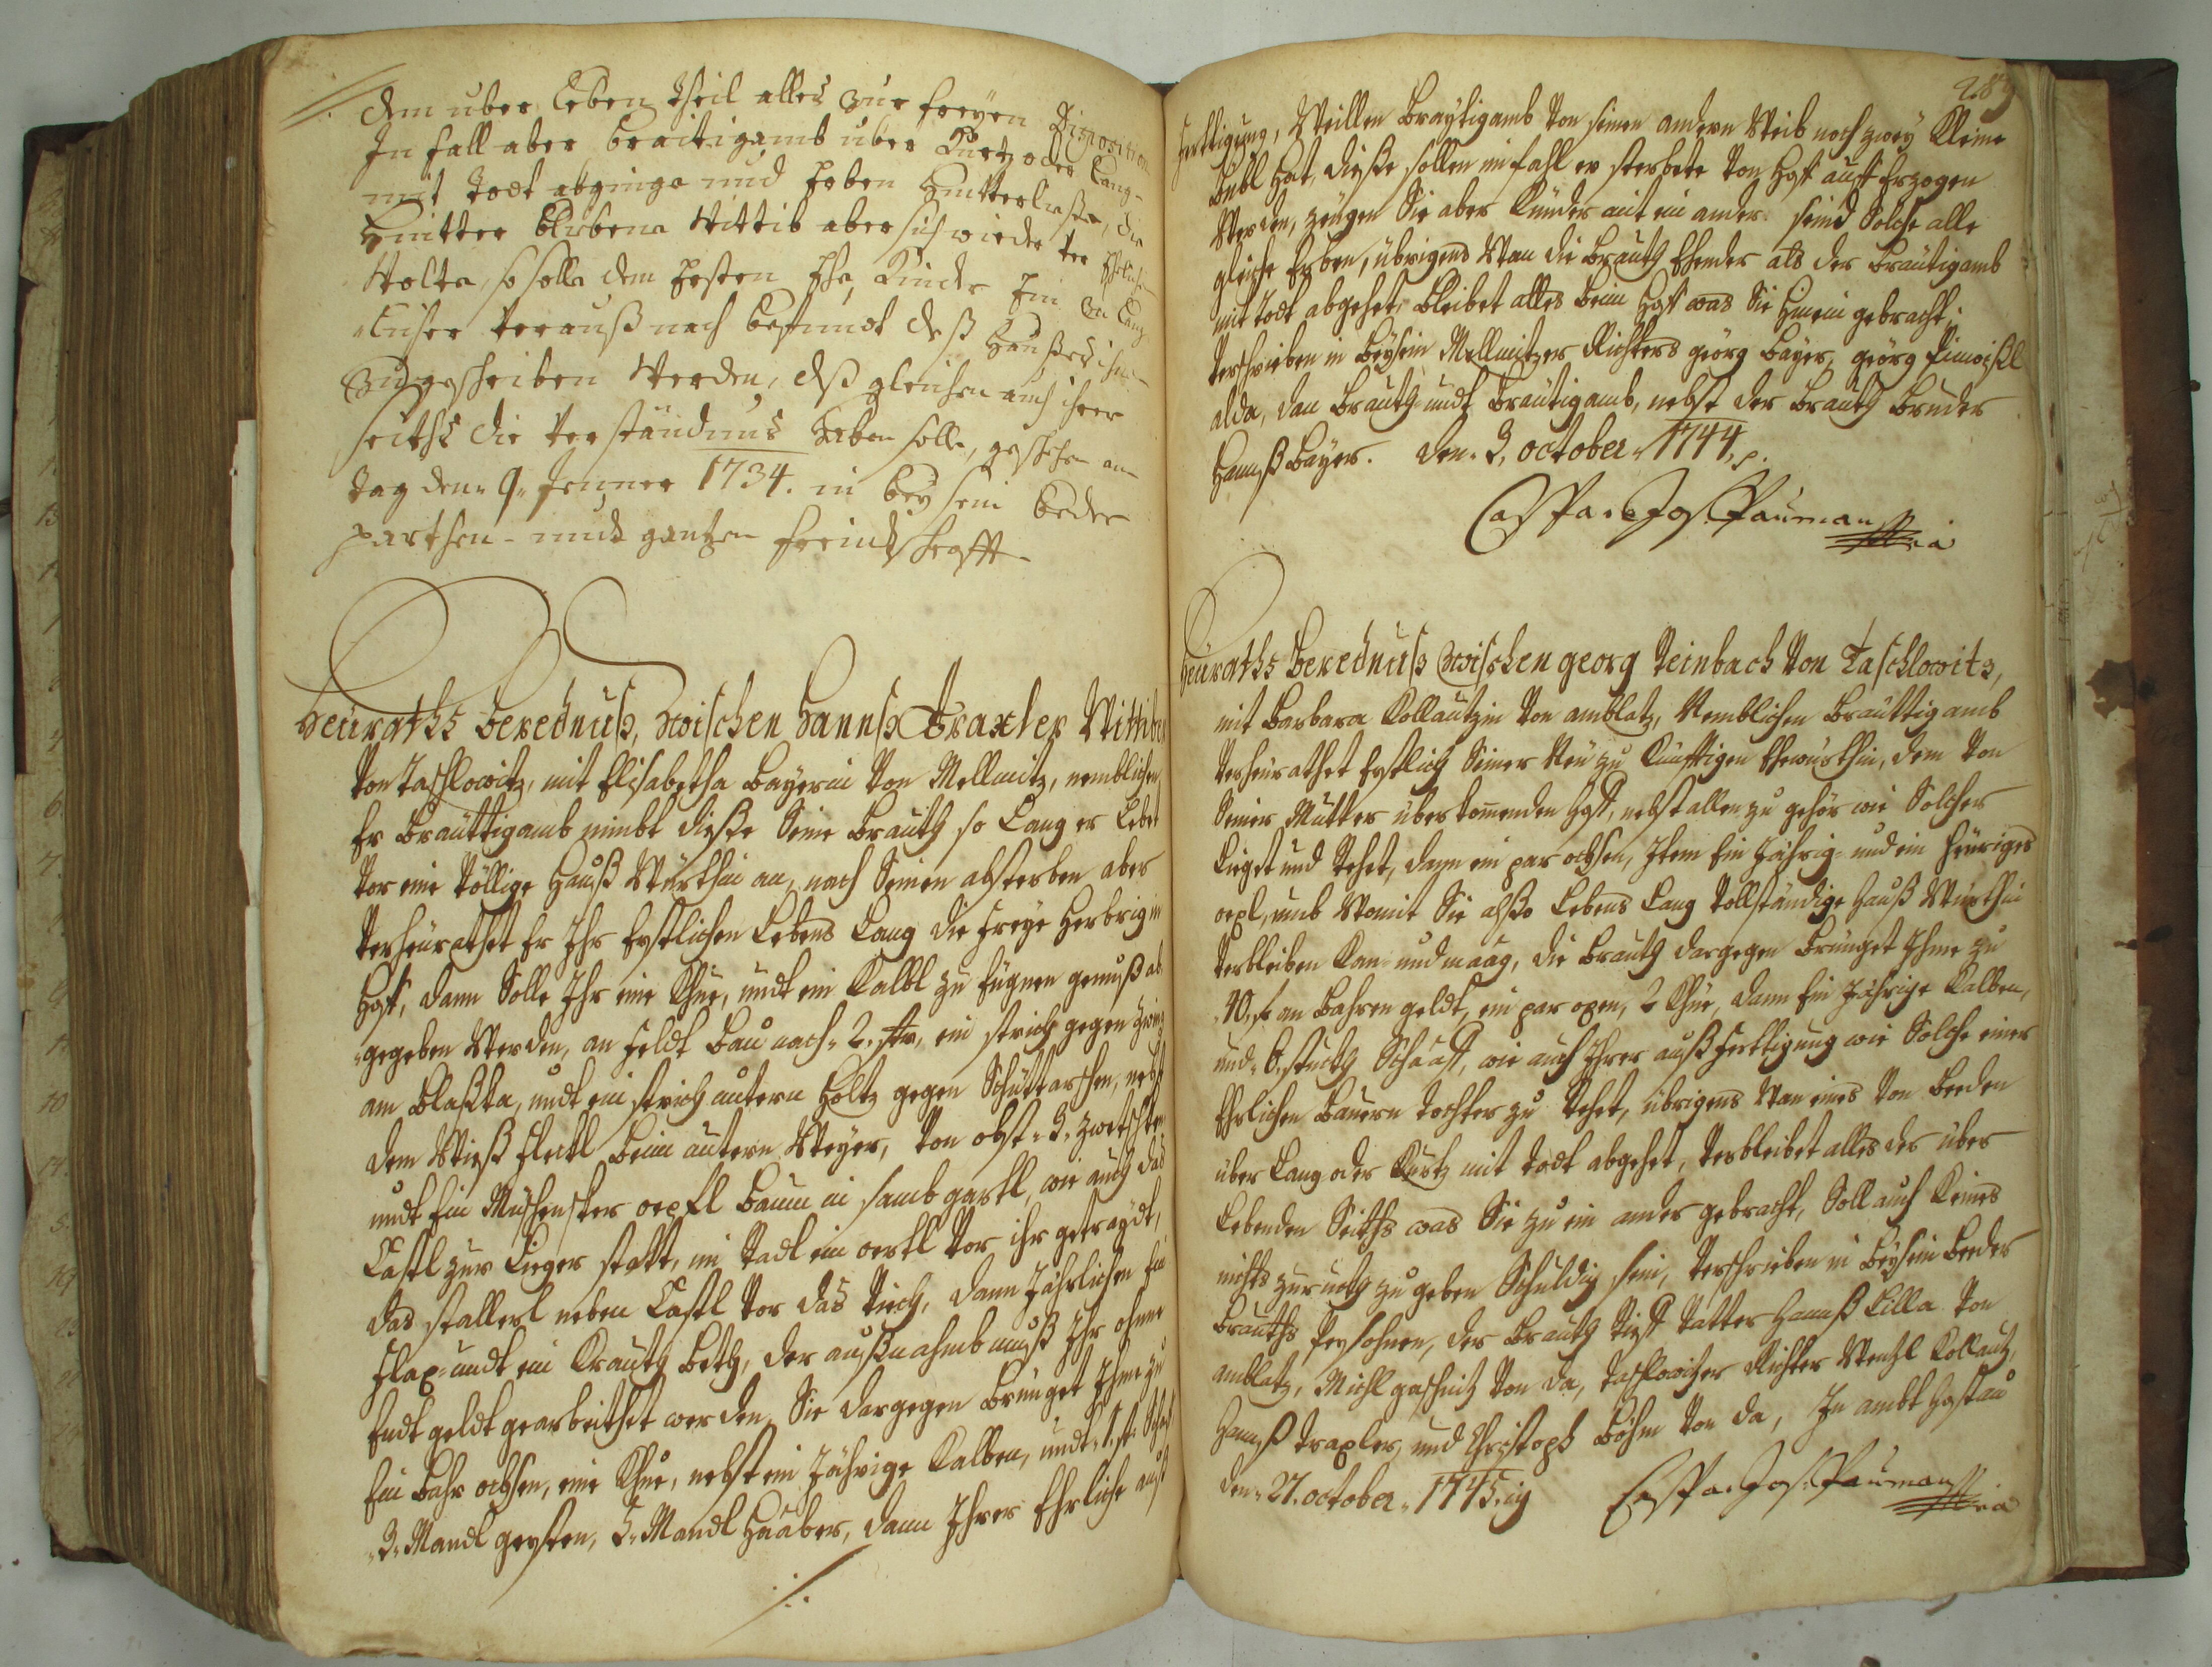 dem uber leben theil alles zur freyen Disposition
In fall aber braitigamb uber Kurtz oder lang
mit todt abginge und Erben hintterlaßte, die
hintter blibene Wittib aber sich wieder ver Ehelichen
Wolte, so solle dem Ersten Ehe Kinde
vorauß nach befund deß Haußes ihme
zugeschriben Werden, deß gleichen auch ihrer
seiths die verständnus haben solle, geschehen am
tag den 9. Jenner 1734. in bey sein beder
parthen und gantzen freindschafft
Heuraths berednuß, zwischen Hannß Traxler Wittiber
Von Taschlowitz, mit Elisabetha Bayerin Von Mellnitz, nemblichen
Er Bräuttigamb nimbt dieße Seine Brauth so Lang er Lebet
Vor eine Völlige Hauß Würthin an, nach Seinen absterben aber
Verheurathet Er Ihr Erstlichen Lebens Lang die freye Herbrig in
Hoff, dann Solle Ihr eine Khue, undt ein Kalbl zu Eugnen genuß ab
gegeben Werden, an feldt bau nach 2. str. ein strich gegen
am Blaßka, undt ein strich untern Holtz gegen Schüttarschen, nebst
dem Wieß fleckl beim untern Weyer, Von obst 3. zwetschken
undt Ein Muschensker oepfl baum in samb gartl, wie auch das
Castl zur Lieger statt, im Stadl ein oertl Vor ihr getraydt,
das stallerl neben Castl Vor das Viech, dann Jährlichen Ein
flax undt ein Krauth beth, der außnahmb muß Ihr ohne
Endt geldt gearbeithet werden, Sie dargegen bringet Ihme zu
Ein Bahr ochsen, eine Khue, nebst ein Jährige Kalben, undt 1. st. Schaff
3. Mandl gersten, 5. Mandl Haaber, dann Ihrer Ehrliche auß
./.
289
fertigung, Weillen Braytigamb Von seinen andern Weib noch zwey Kleine
Bubl hat, dieße sollen im fahl er sterbete Von Hoff auff Erzogen
Werden, zeugen Sie aber Kinder mit ein ander seind Solche alle
gleiche Erben, übrigens Wan die Brauth Ehender als der Bräutigamb
mit todt abgehet, bleibet alles beim Hoff was Sie hinein gebracht;
Verschrieben in beysein Mellnitzer Richters georg Bayer, georg
alda, dan Brauth undt Bräutigamb, nebst der Brauth Bruder
Hannß Bayer. den 3. october 1744. p.
Caspar Jos. Pauman mpria
Heuraths Berednuß zwischen georg Steinbach Von Taschlowitz,
mit Barbara Kollautzin Von Amblatz, Nemblichen Bräuttigamb
Verheurathet Erstlich Seiner Neu zu Künfftigen Ehewürthin, dem Von
Seiner Mutter überkomenden Hoff, nebst allen zu gehör wie Solcher
Lieget und stehet, dann ein par ochsen, Item Ein Jährig und ein heuriges
oexl, umb Womit Sie alßo Lebens Lang Vollständige Hauß Würthin
Verbleiben Kan und maag, die Brauth dargegen Bringet Ihme zu
40 f. an Bahren geldt, ein par oxen, 2 Khue, dann Ein Jährige Kalben,
und 6. stuckh Schaaff, wie auch Ihrer außfertigung wie Solche einer
Ehrlichen Bauern Tochter zu stehet, übrigens Wan eines Von Beeden
über Lang oder Kurtz mit todt abgehet, Verbleibet alles der über
Lebenden Seiths was Sie zu ein ander gebracht, Soll auch Keines
nichts zuruckh zu geben Schuldig sein, Verschrieben in Beysein Beeder
Brauths Persohnen, der Brauth Stieff Vatter Hannß Lilla Von
Amblatz, Michl gaschnitz Von da, Taschlowitzer Richter Wentzl Kollautz,
Hannß Traxler, und Christoph Böhm Von da, In ambt Hostau
den 27. october 1745.
Caspar Jos. Pauman mpria